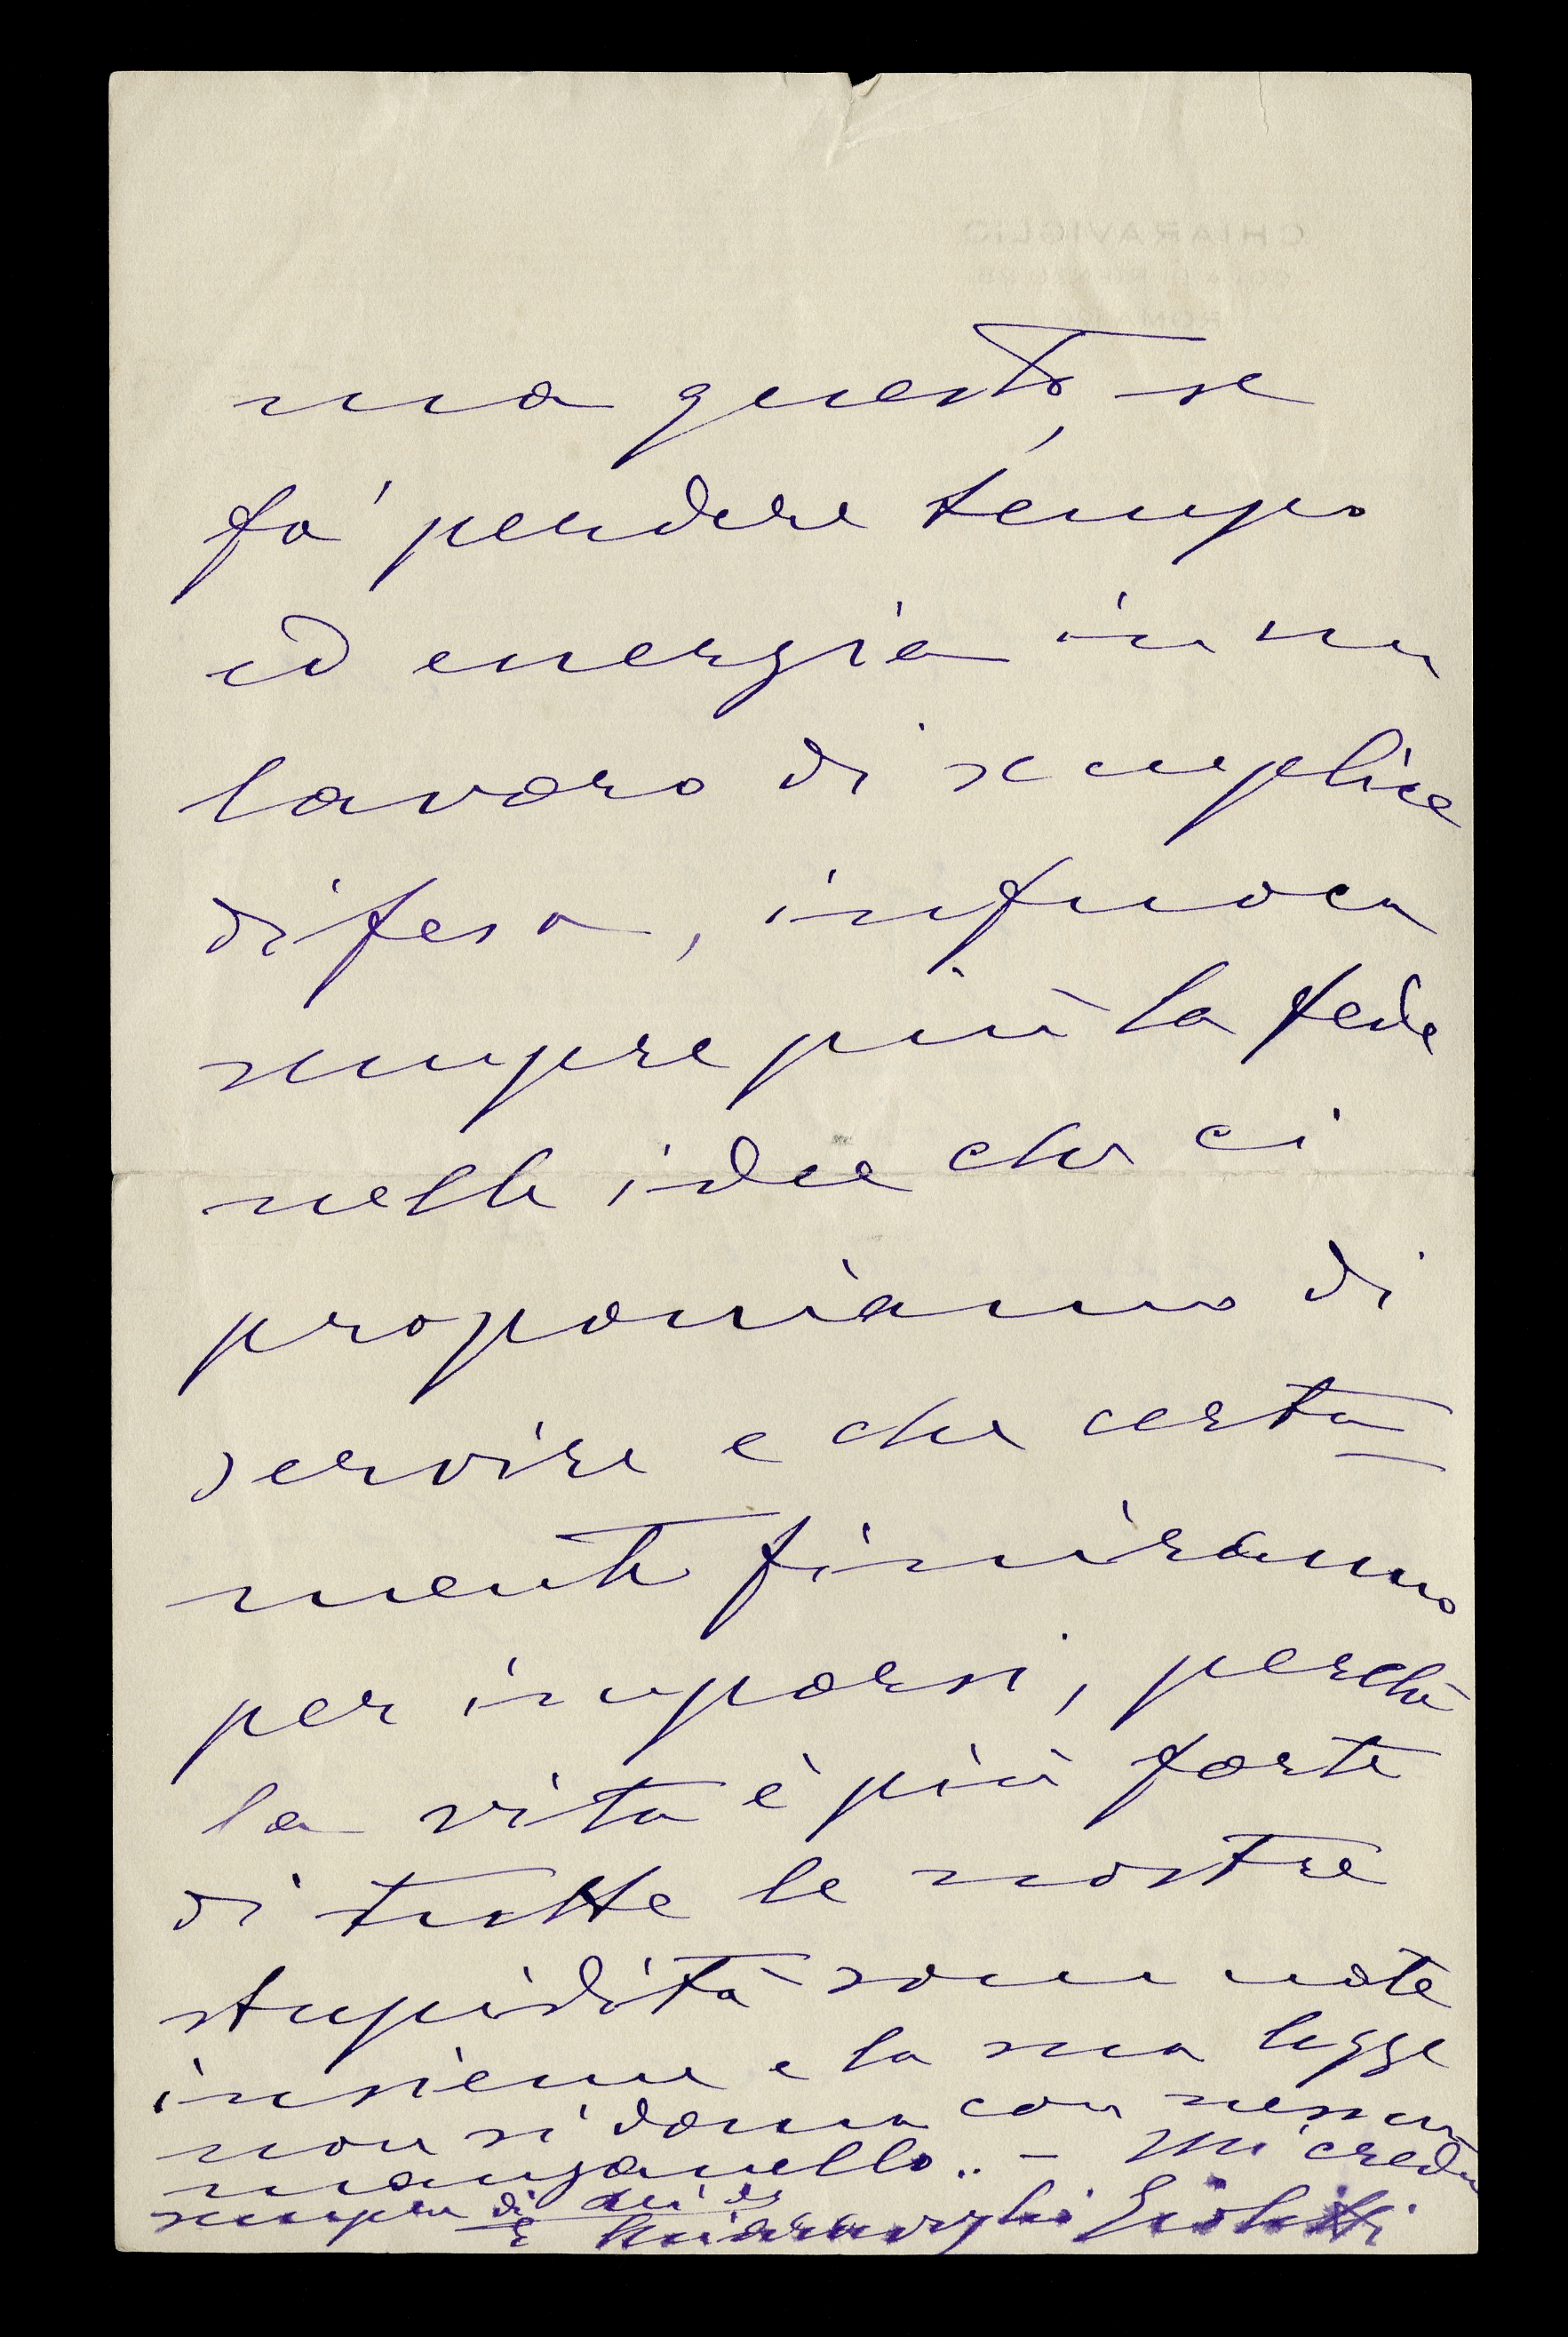 CHIARAVIGLIO
ROMA
ma questo, se
fa' perdere tempo
ed energia in un
lavoro di semplice
difesa, infuoca
sempre più la fede
nelle idee che ci
proponiamo di
servire e che certa-
mente finiranno
per imporsi, perchè
la vita è più forte
di tutte le nostre
stupidità sommate
insieme e la sua legge
non si doma con nessun
manganello.. – Mi creda
sempre di Lei
Chiaraviglio Giolitti